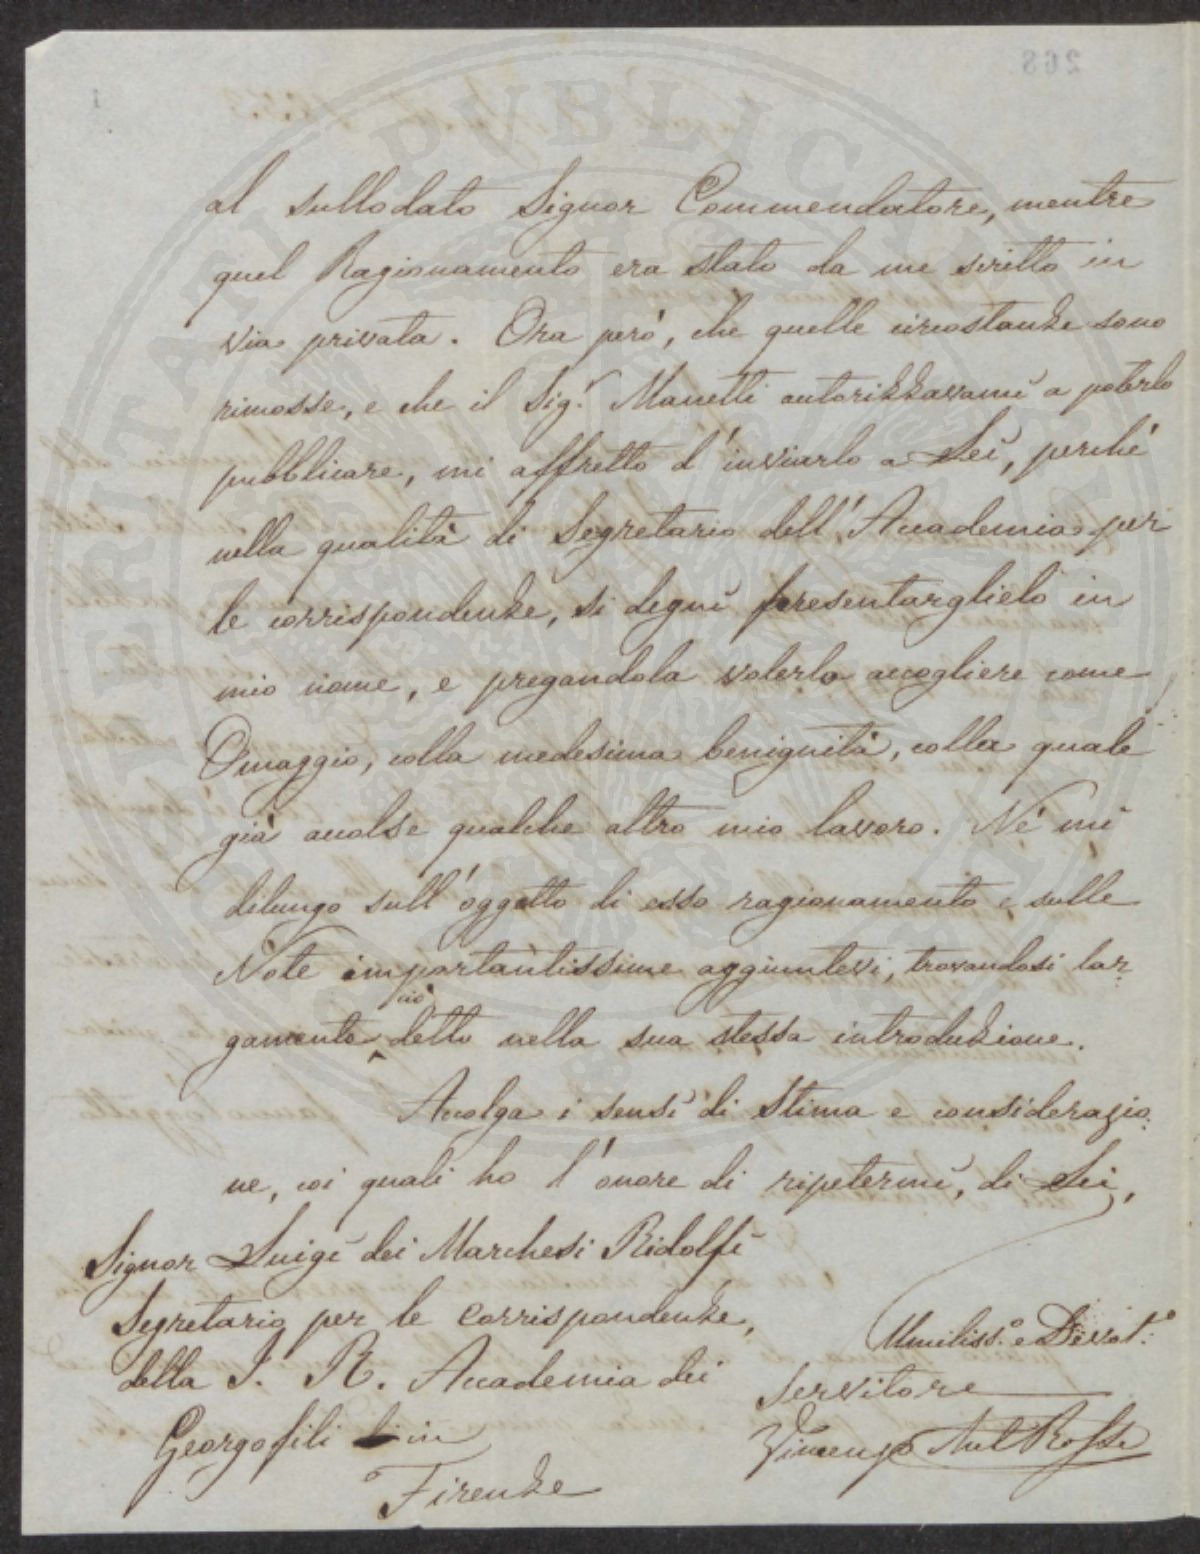 268
al sullodato Signor Commendatore, mentre
quel Ragionamento era stato da me scritto in
via privata. Ora però, che quelle circostanze sono
rimosse, e che il Sig.r Manetti autorizzavami a poterlo
pubblicare, mi affretto d'inviarlo a Lei, perché
nella qualità di Segretario dell'Accademia per
le corrispondenze, si degni presentarglielo in
mio nome, e pregandola volerlo accogliere come
Omaggio, colla medesima benignità, colla quale
già accolse qualche altro mio lavoro. Né mi
dilungo sull'oggetto di esso ragionamento e sulle
Note importantissime aggiuntevi, trovandosi lar-
gamente ciò detto nella sua stessa introduzione.
Accolga i sensi di stima e considerazio-
ne, coi quali ho l'onore di ripetermi, di Lei,
Signor Luigi dei Marchesi Ridolfi
Segretario per le Corrispondenze,
della I. R. Accademia dei
Georgofili in
Firenze
Umiliss.o e Devot.o
Servitore
Vincenzo Ant Rossi